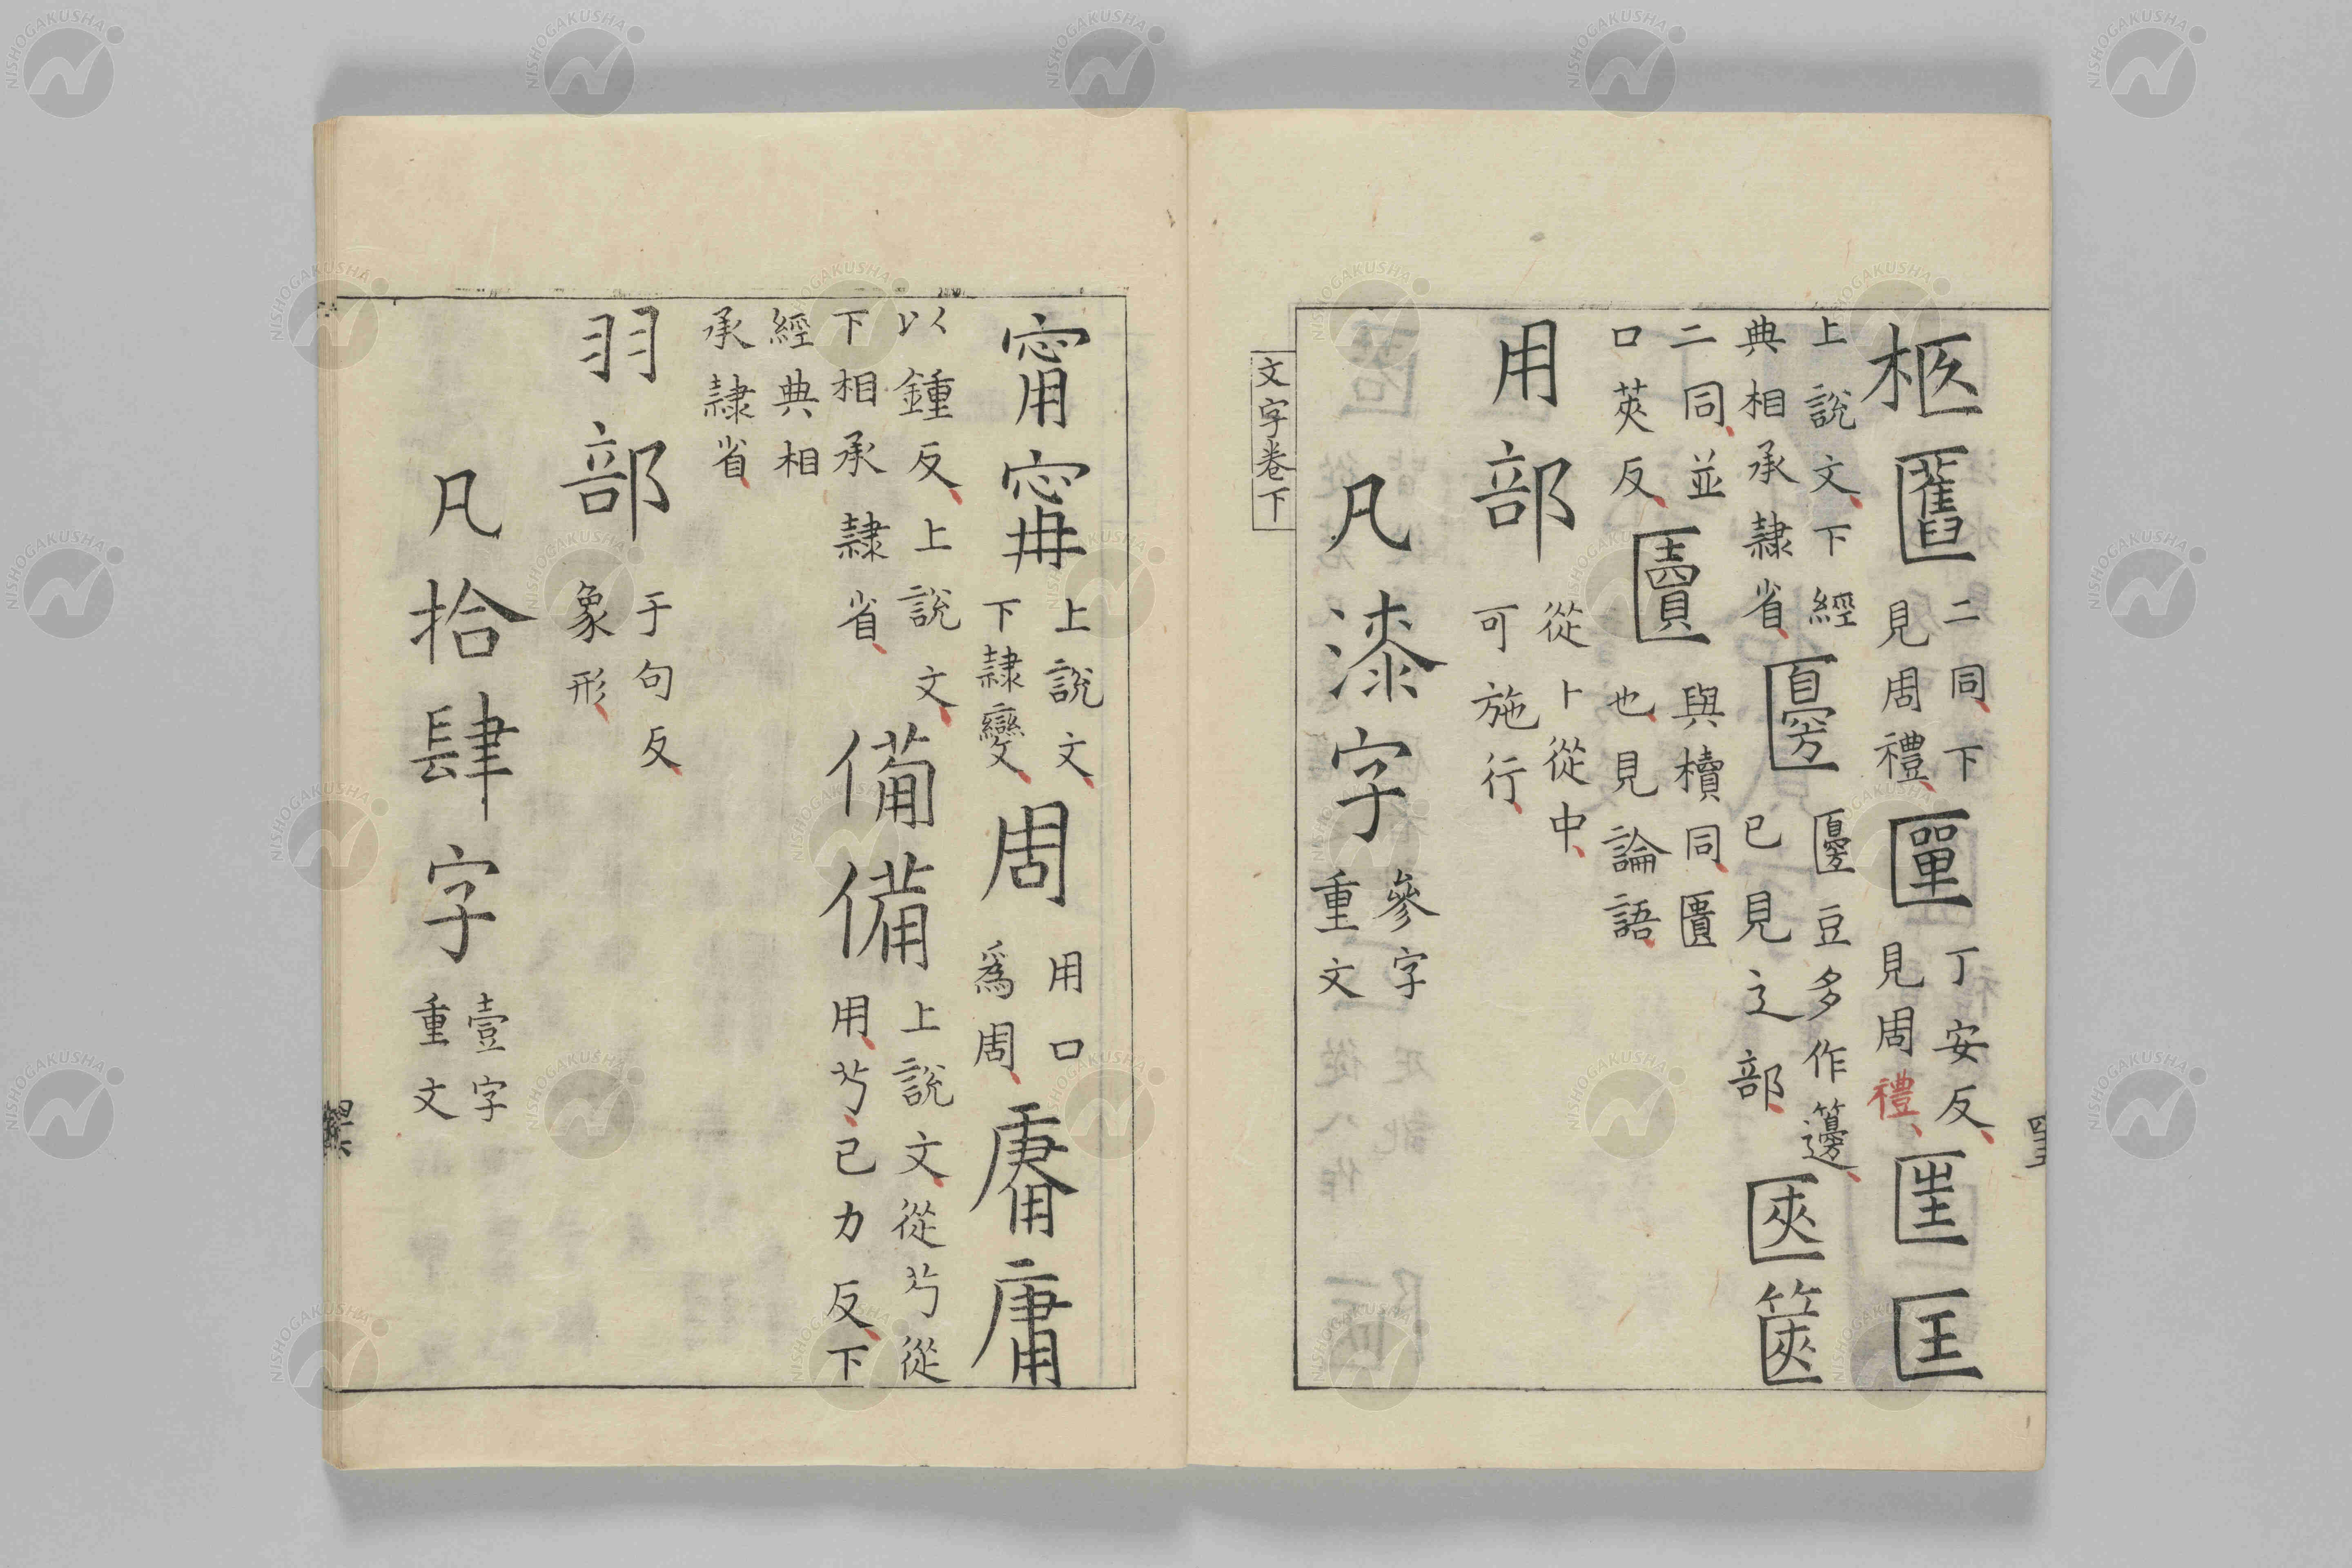 柩匶二同下見周禮匰丁安反見周禮𠤰匡
上說文下經典相承隸省𠥧匾豆多作籩已見辵部匧篋
二同並口莢反匵與櫝同匱也見論語
用部從卜從中可施行
凡漆字參字重文
文字卷下
甯寗上說文下隸變周用口爲周𤲟庸
以鍾反上說文下相承隸省僃備上說文從𦫳從用𦫳己力反下
經典相承隸省
羽部于句反象形
凡拾肆字壹字重文
NISHOGAKUSHA